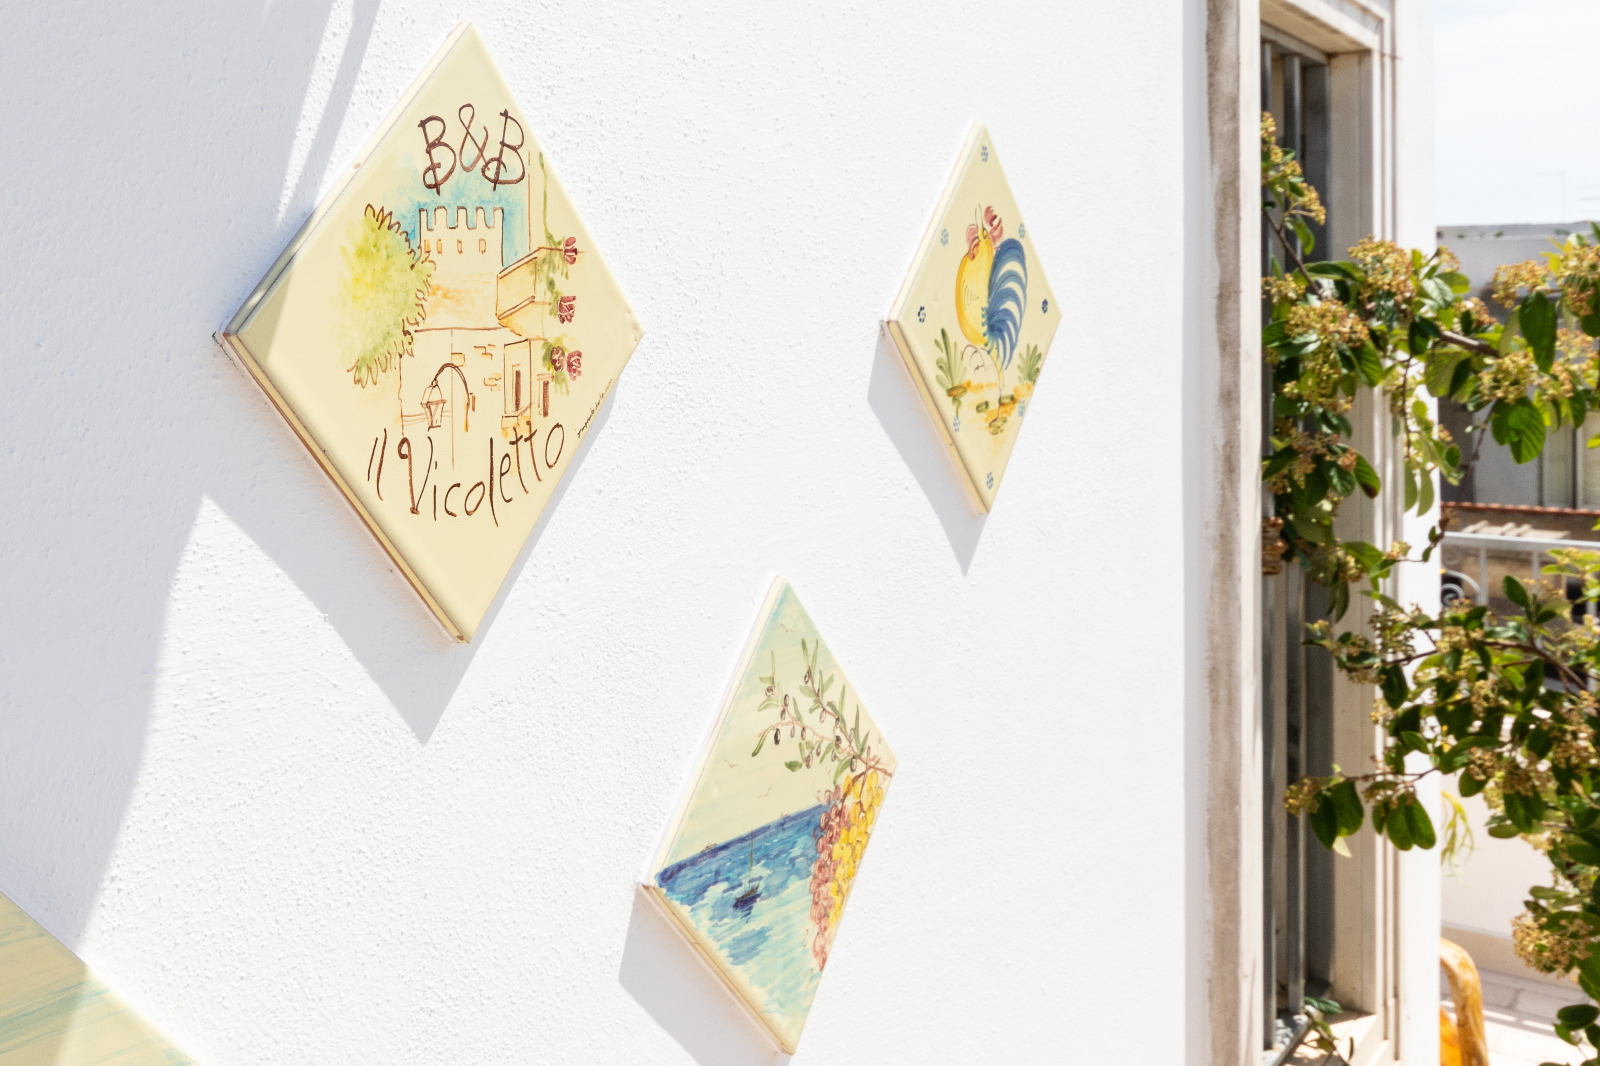 B&B
Il Vicoletto